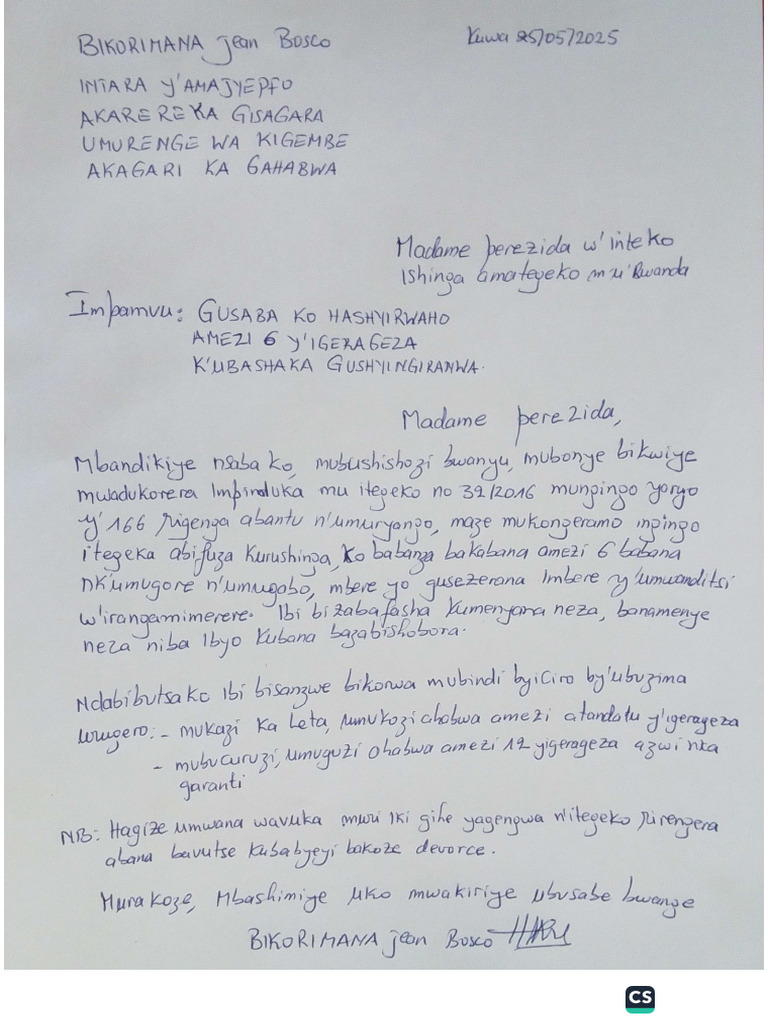 BIKORIMANA Jean Bosco
Kuwa 25/05/2025
INTARA Y'AMAJYEPFO
AKARERE KA GISAGARA
UMURENGE WA KIGEMBE
AKAGARI KA GAHABWA
Madame perezida w'inteko
Ishinga amategeko m u'Rwanda
Impamvu: GUSABA KO HASHYIRWAHO
AMEZI 6 Y'IGERAGEZA
K'UBASHAKA GUSHYINGIRANWA.
Madame perezida,
Mbandikiye nsaba ko, mubushishozi bwanyu, mubonye bikwiye
mwadukorera Impinduka mu itegeko no 32/2016 mungingo yaryo
y'166 rigenga abantu n'umuryango, maze mukongeramo ingingo
itegeka abifuza Kurushinga, ko babanza bakabana amezi 6 babana
nk'umugore n'umugabo, mbere yo gusezerana Imbere y'umwanditsi
w'irangamimerere. Ibi bizabafasha Kumenyana neza, banamenye
neza niba Ibyo Kubana bazabishobora.
Ndabibutsa ko Ibi bisanzwe bikorwa mubindi byiciro by'ubuzima
urugero: - mukazi ka Leta, umukozi ahabwa amezi atandatu y'igerageza
- mubucuruzi, umuguzi ahabwa amezi 12 yigerageza azwi nka
garanti
NB: Hagize umwana wavuka muri Iki gihe yagengwa n'itegeko rirengera
abana bavutse Kubabyeyi bakoze devorce.
Murakoze, Mbashimiye uko mwakiriye ubusabe bwange
BIKORIMANA Jean Bosco
CS